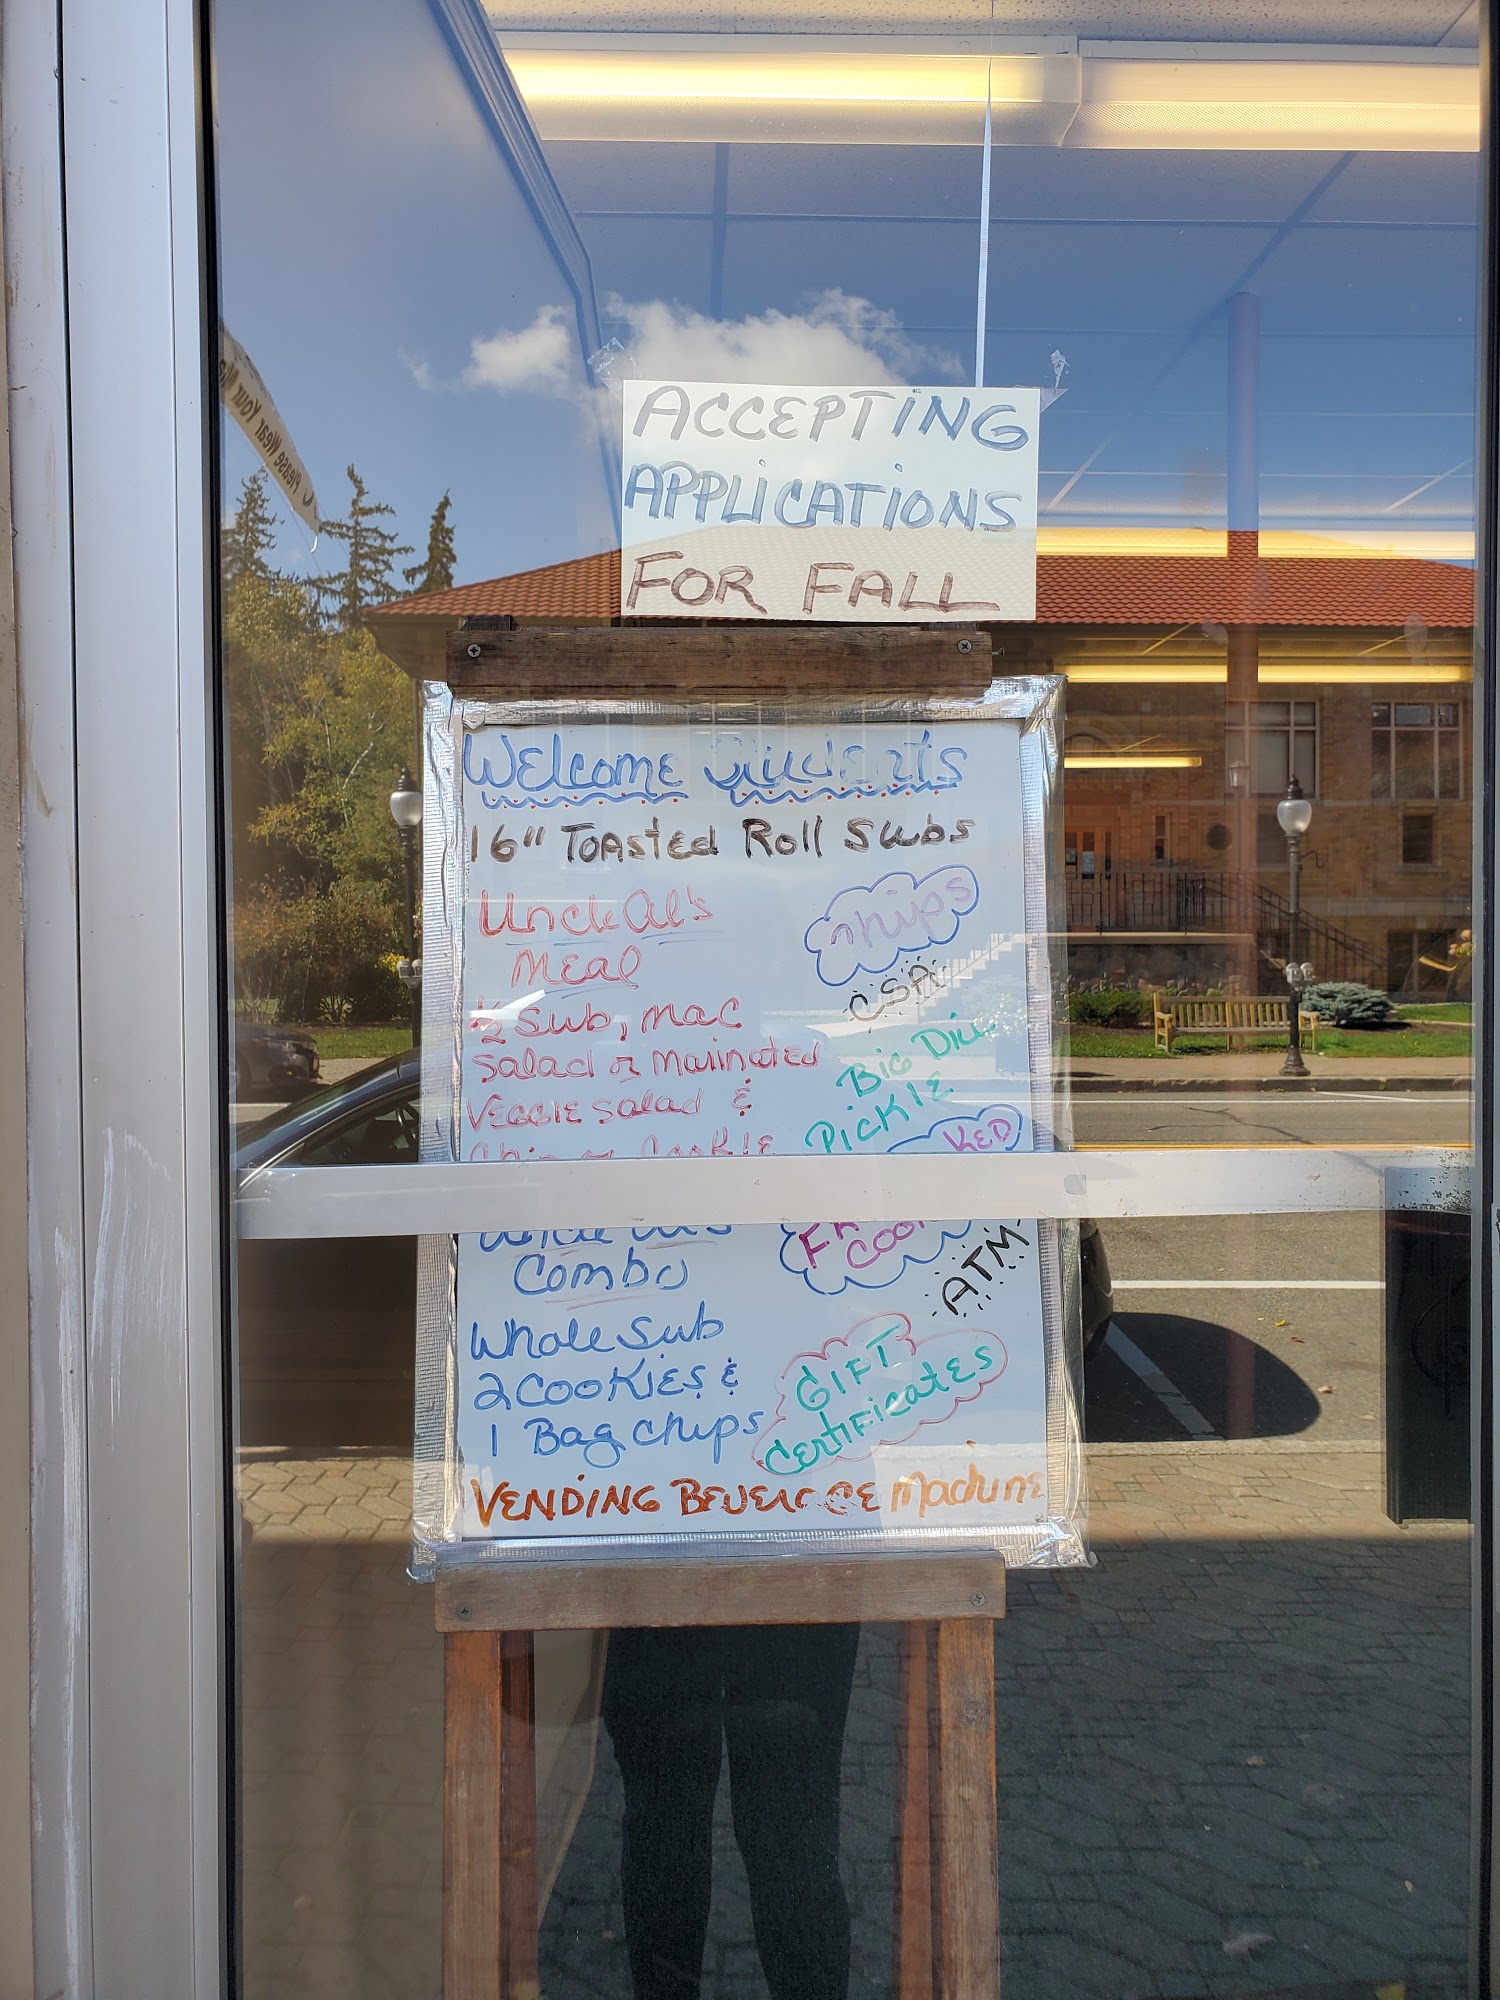 Please Wear Your
ACCEPTING
APPLICATIONS
FOR FALL
Welcome Students
16" Toasted Roll Subs
Uncle Al's
Meal
½ Sub, Mac
Salad or Marinated
Veggie Salad &
Chip or Cookie
Uncle Al's
Combo
Whole Sub
2 Cookies &
1 Bag chips
Chips
CSA
Big Dill
Pickle
ATM
GIFT
Certificates
Vending Beverage Machine